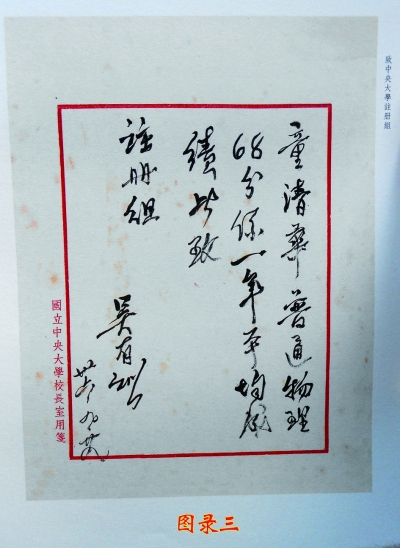 致中央大學註册組
童清華普通物理
68分係一年平均成
績此致
註册組
吴有训
卅六、九、廿六
國立中央大學校長室用箋
图录三